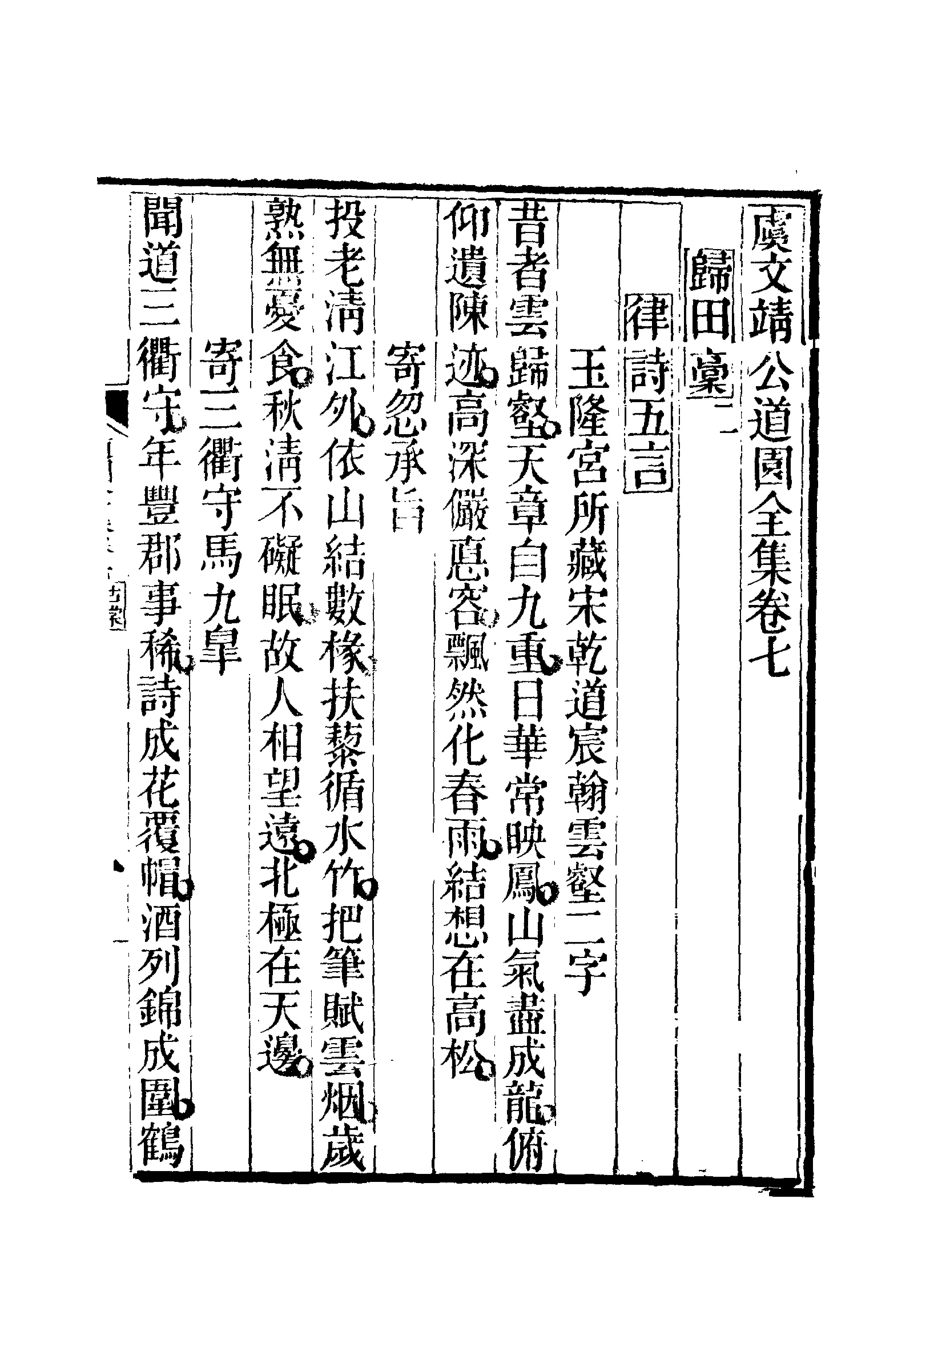 虞文靖公道園全集卷七
歸田稾二
律詩五言
玉隆宮所藏宋乾道宸翰雲壑二字
昔者雲歸壑天章自九重日華常映鳳山氣盡成龍俯
仰遺陳迹高深儼悳容飄然化春雨結想在高松
寄忽承旨
投老淸江外依山結數椽扶藜循水竹把筆賦雲烟歲
熟無憂食秋淸不礙眠故人相望遠北極在天邊
寄三衢守馬九臯
聞道三衢守年豐郡事稀詩成花覆帽酒列錦成圍鶴